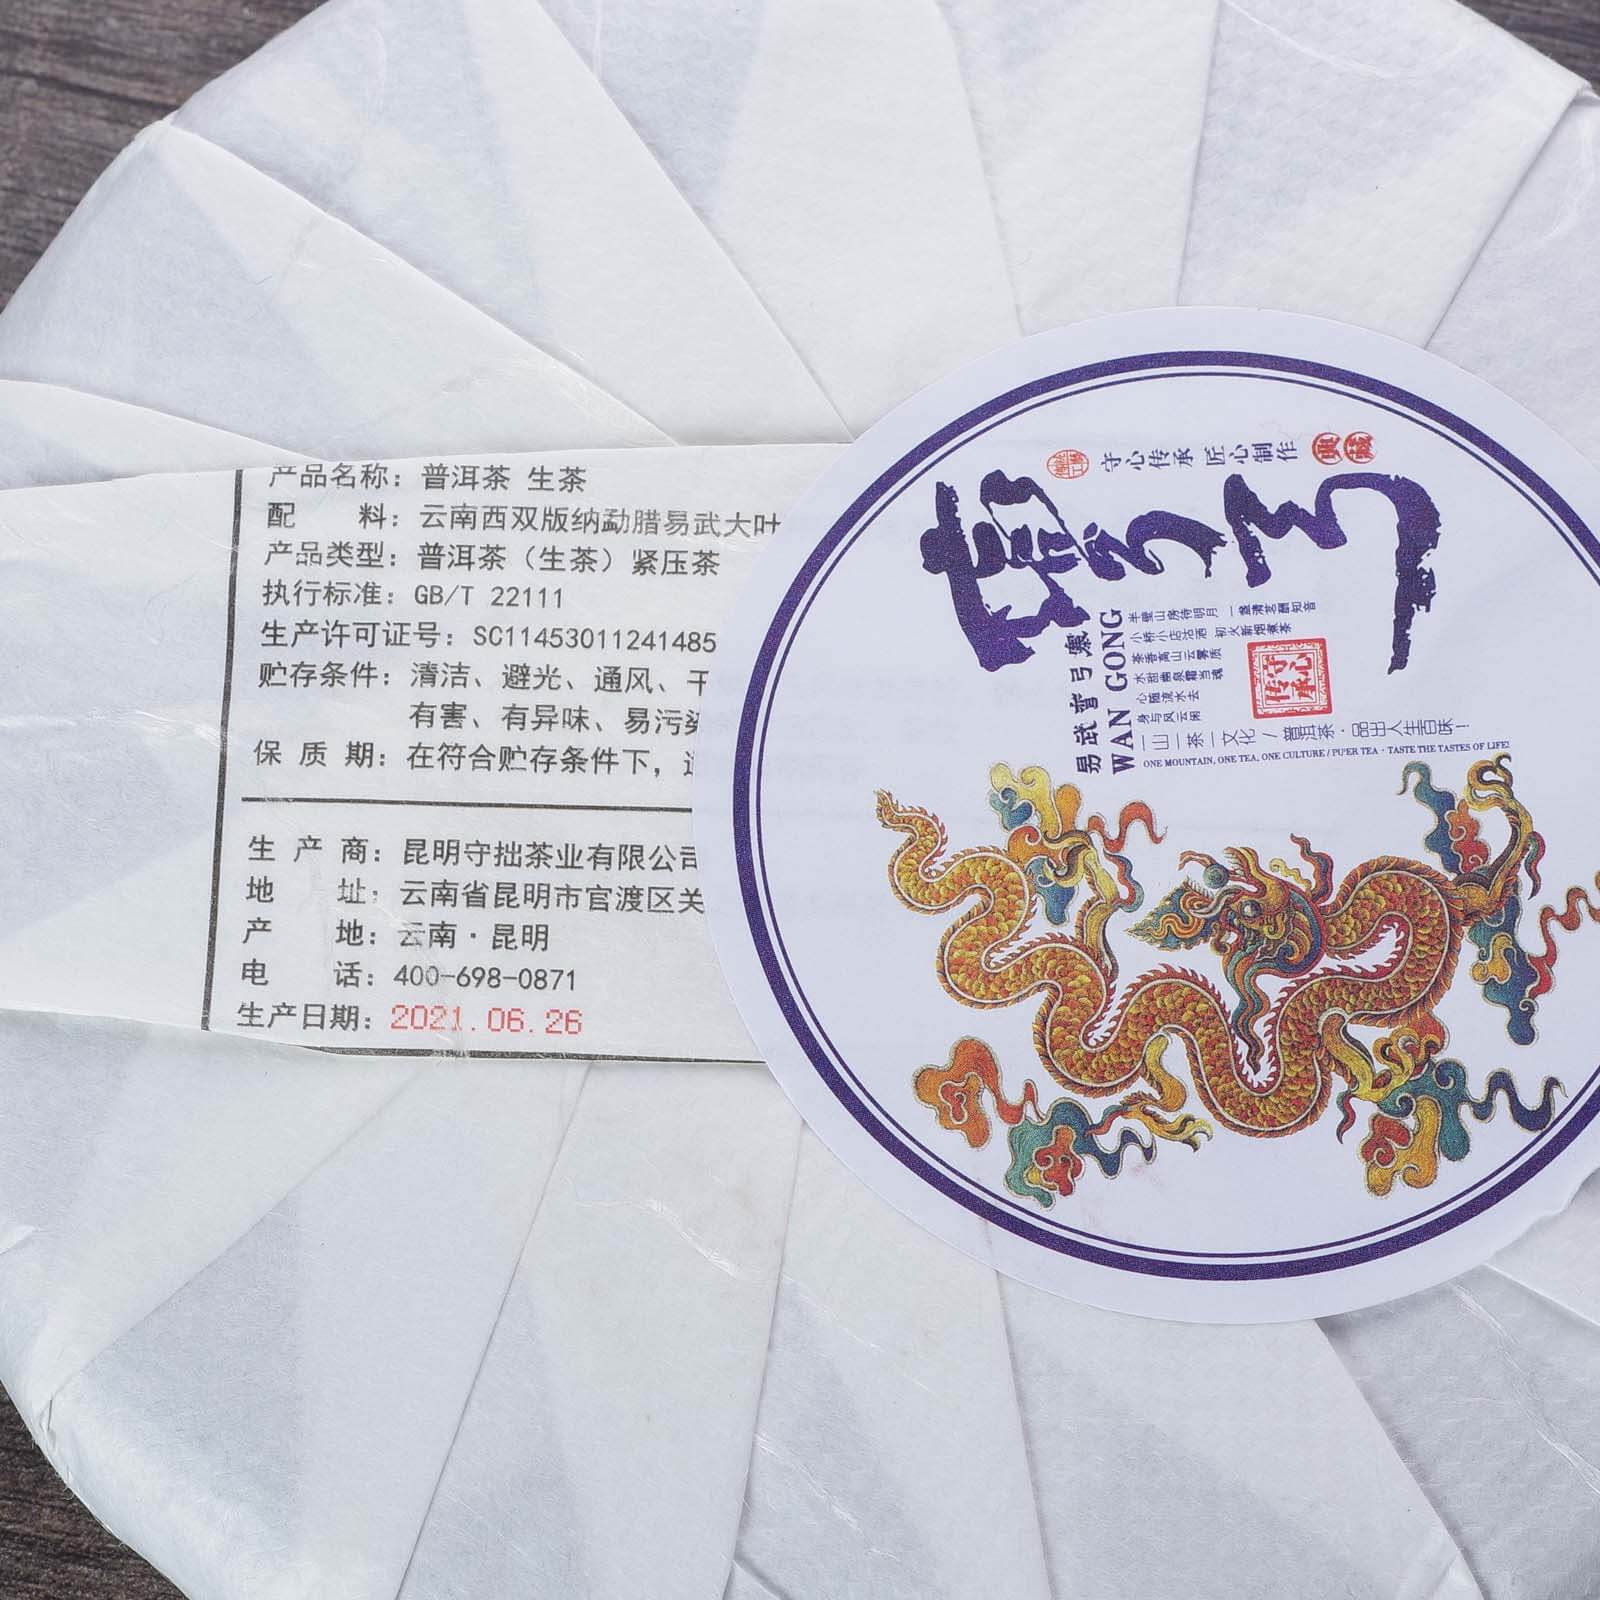 产品名称：普洱茶 生茶
配 料：云南西双版纳勐腊易武大叶
产品类型：普洱茶（生茶）紧压茶
执行标准：GB/T 22111
生产许可证号：SC11453011241485
贮存条件：清洁、避光、通风、干
有害、有异味、易污染
保 质 期：在符合贮存条件下，适
生 产 商：昆明守拙茶业有限公司
地 址：云南省昆明市官渡区关
产 地：云南·昆明
电 话：400-698-0871
生产日期：2021.06.26
守心传承 匠心制作
典藏
弯弓
易武曾弓寨
WAN GONG
半壁山房待明月 一盏清茗酬知音
小桥小店沽酒 初火新烟煮茶
茶香高山云雾质
水甜幽泉霜当魂
心随流水去
身与风云闲
守心传承
一山一茶一文化 / 普洱茶·品出人生百味！
ONE MOUNTAIN, ONE TEA, ONE CULTURE / PU'ER TEA · TASTE THE TASTES OF LIFE!